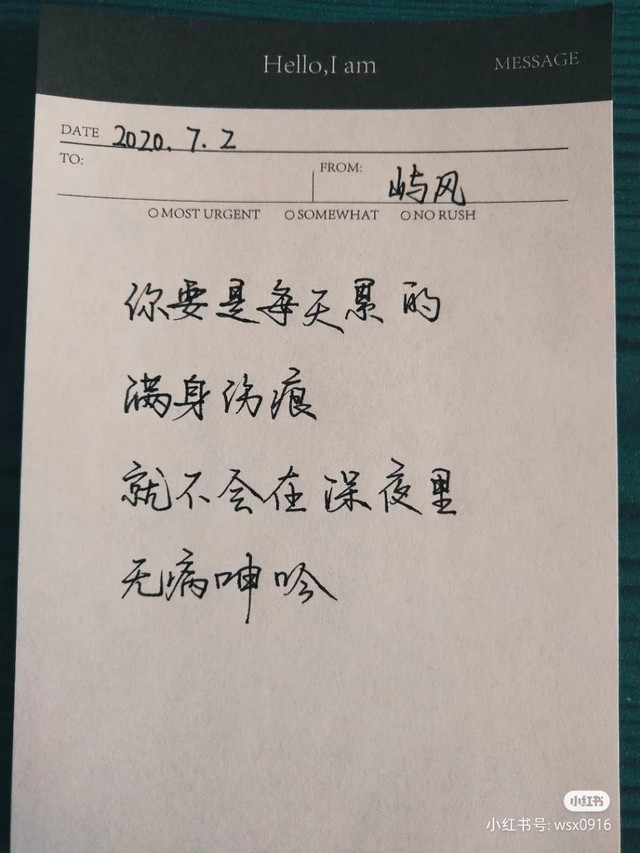 Hello,I am
MESSAGE
DATE 2020.7.2
TO:
FROM: 屿风
MOST URGENT SOMEWHAT NO RUSH
你要是每天累的
满身伤痕
就不会在深夜里
无病呻吟
小红书
小红书号: wsx0916